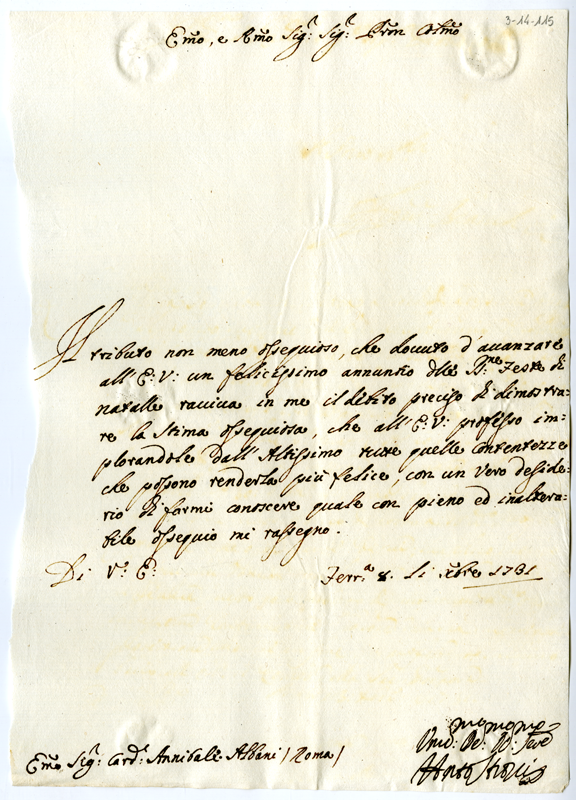 3-14-115
Emo, e Rmo Sig.r Sig.r Pron Colmo
Il tributo non meno ossequioso, che dovuto d'avanzare
all'E: V: un felicissimo annuntio delle S.me Feste di
natalle ravviva in me il debito preciso di dimostra=
re la stima ossequiosa, che all'E: V: professo im=
plorandole dall'Altissimo tutte quelle Contentezze
che possono renderla più felice, con un vero deside=
rio di farmi conoscere quale con pieno ed inaltera=
bile ossequio mi rassegno.
Di V.a E.a
Ferr.a 8. li Xbre 1731
Emo Sig.r Card.l Annibale Albani / Roma /